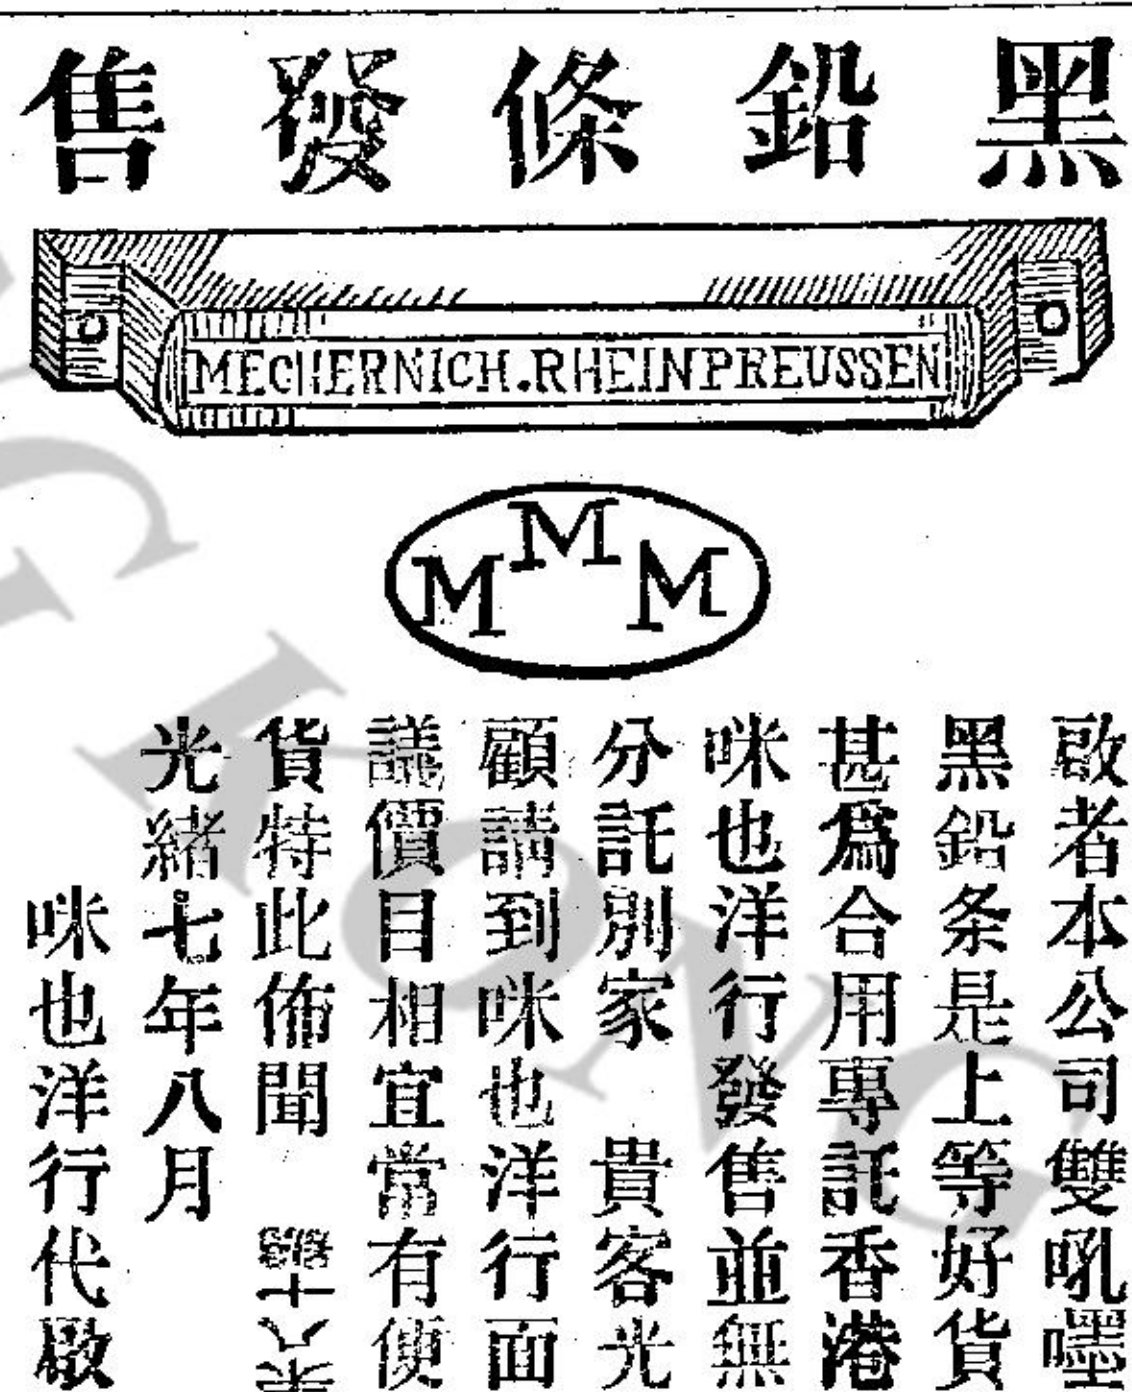 黑鉛條發售
MECHERNICH.RHEINPREUSSEN
M M M
啟者本公司雙吼嚜
黑鉛条是上等好貨
甚爲合用專託香港
咪也洋行發售並無
分託別家 貴客光
顧請到咪也洋行面
議價目相宜常有便
貨特此佈聞
光緒七年八月
咪也洋行代啟